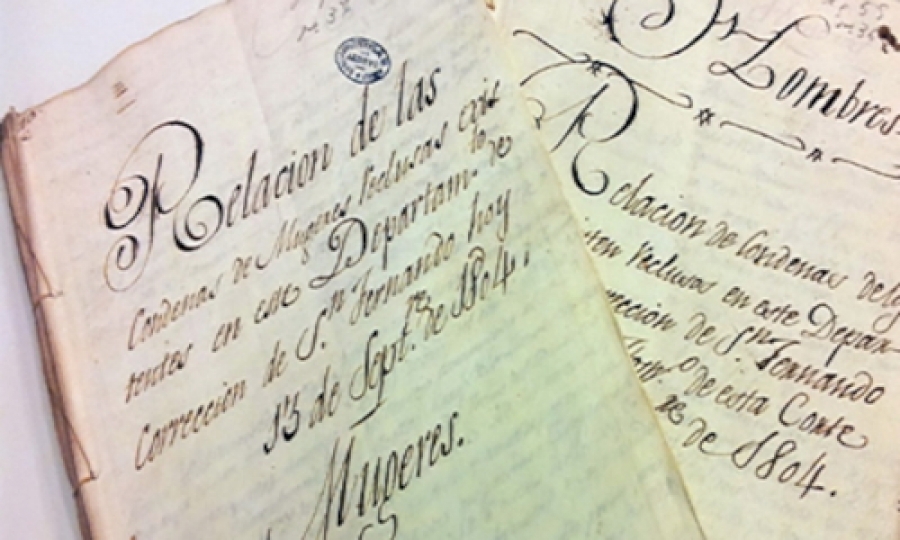 Relacion de las
Condenas de Mugeres Reclusas exis
tentes en este Departam.to de
Correccion de S.n Fernando hoy
13 de Sept.re de 1804.
Mugeres.
Hombres
Relacion de Condenas de
isten reclusos en este Depar-
reccion de S.n Fernando
de esta Corte
de 1804.